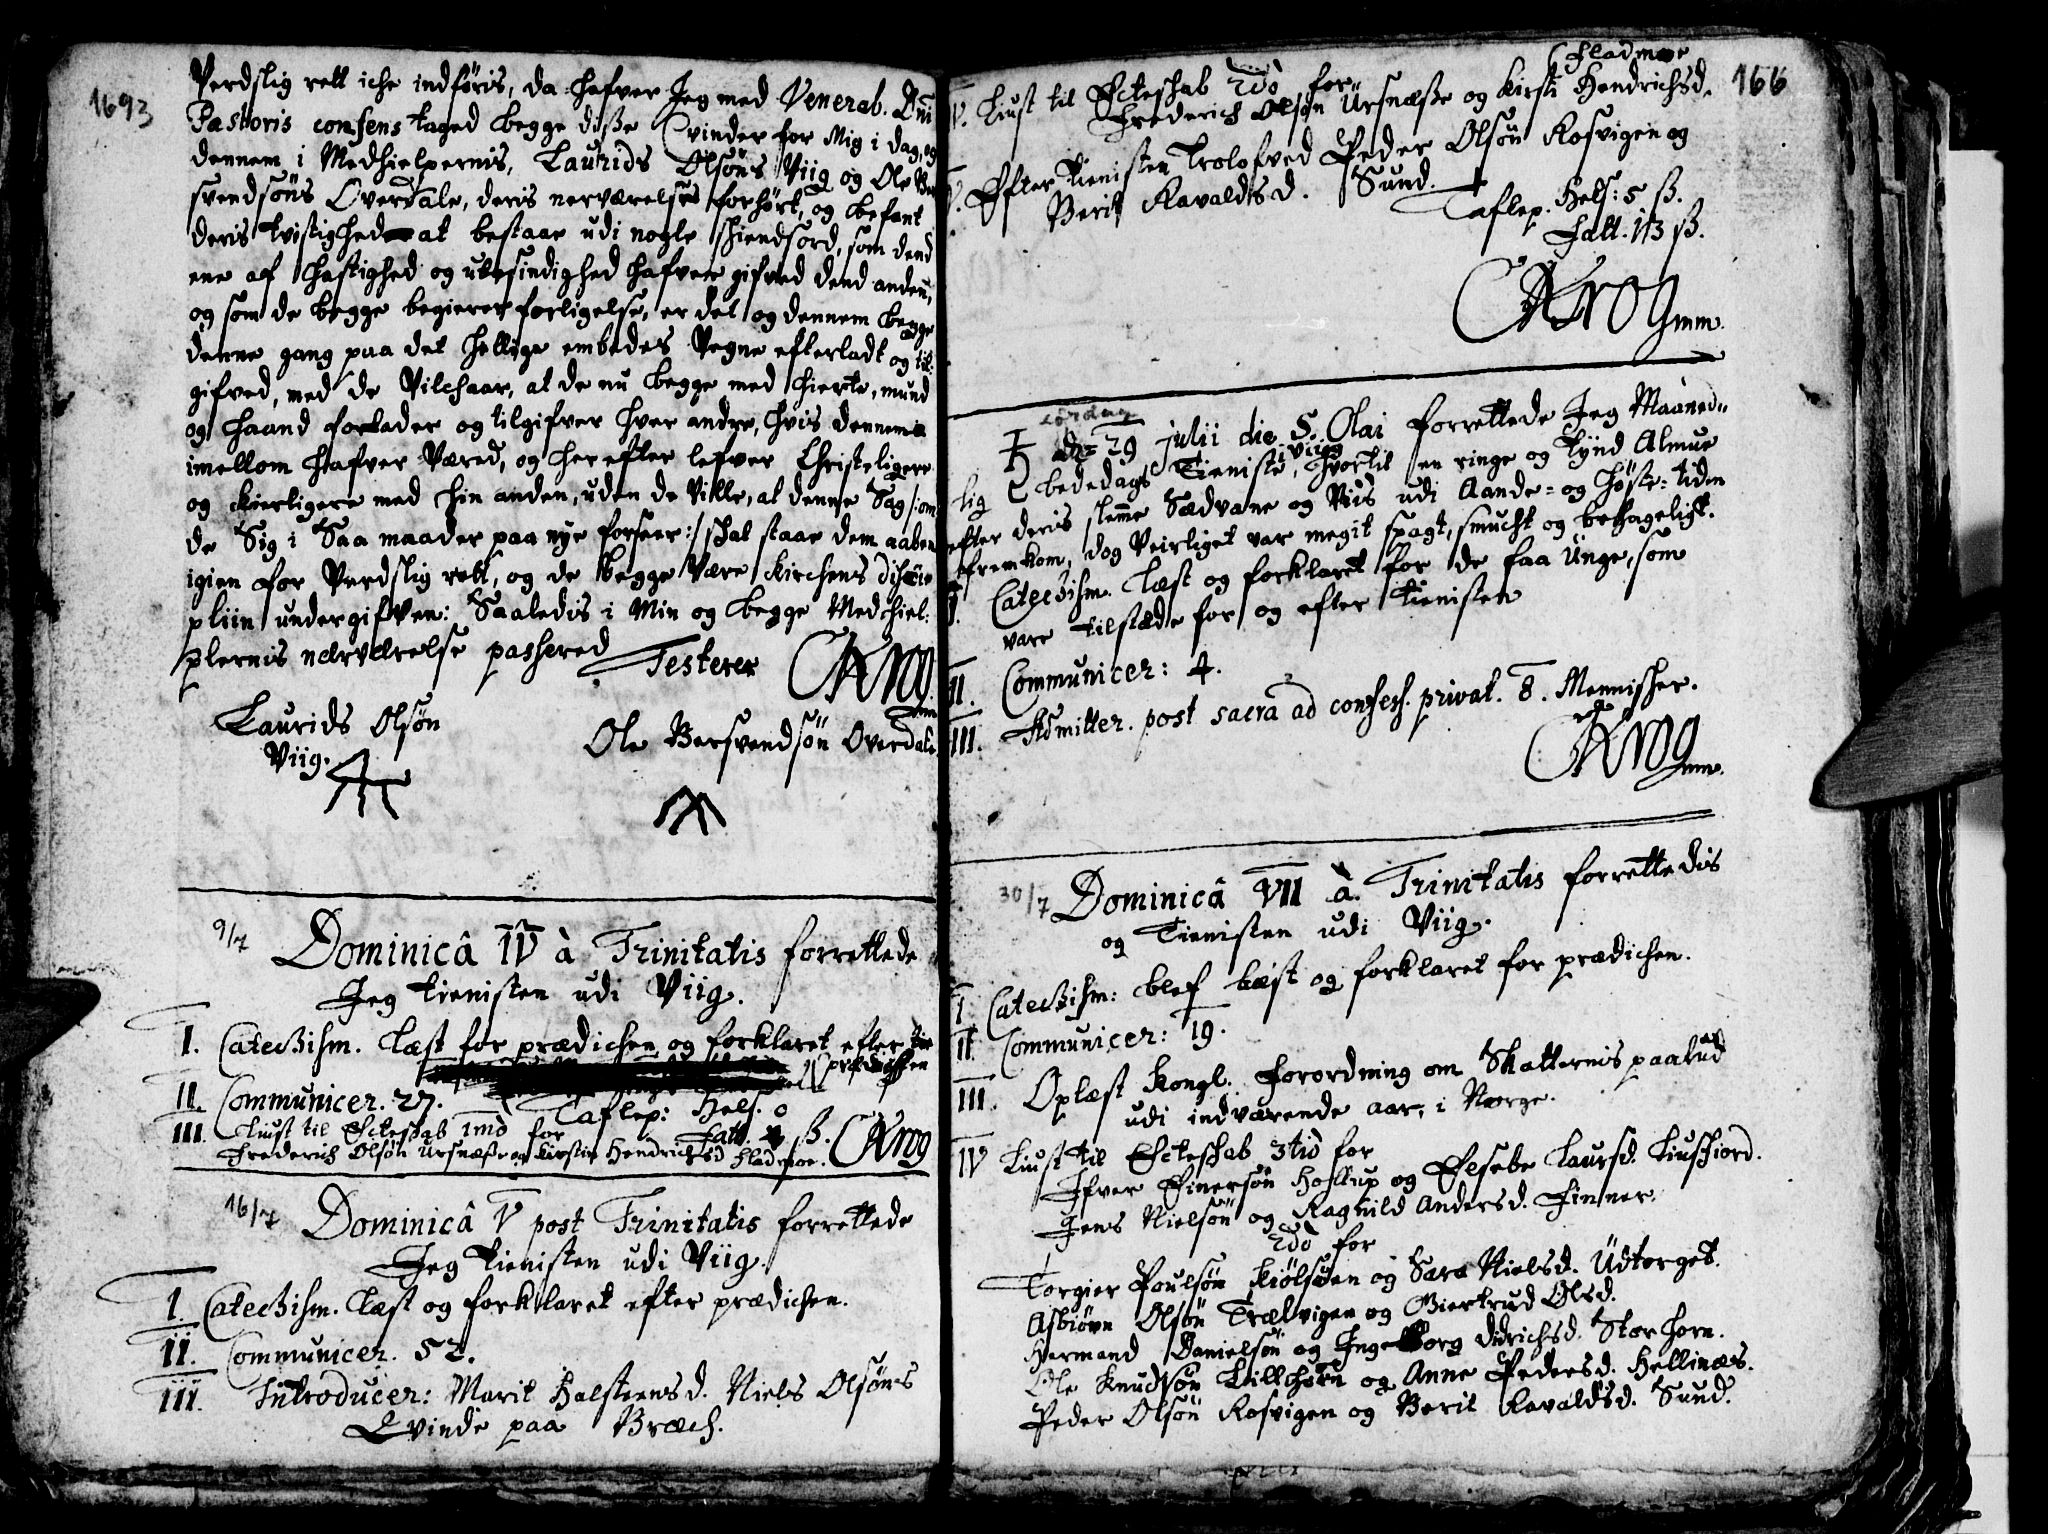 1693
Verdslig rett iche indføris, da hafver Jeg med Venerab. Dni
Pastoris consens taged begge disse Qvinder for Mig i dag, og
dennem i Medhielpernis, Laurids Olsøns Viig og Ole Ber
svendsøns Overdale, deris nerværelse forhørt, og befant
deris tvistighed at bestaae udi nogle skiendsord, som dend
ene af hastighed og ubesindighed hafver gifved dend anden,
og som de begge begierer forligelse, er det og dennem begge
denne gang paa det hellige embedes Vegne efterladt og til:
gifved, med de Vilchaar, at de nu begge med hierte, mund
og haand forlader og tilgifver hver andre, hvis dennem
imellom hafver Været, og her efter lefver Christeligere
og kierligere med hin anden, uden de Ville, at denne Sag /: om
de Sig i Saa maader paa nye forseer :/ skal staae dem aaben
igien for Verdslig rett, og de begge Være Kirchens disci
pliin undergifven: Saaledis i Min og begge Medhiel:
pernis nærværelse passered
Testerer CKrog
mm
Laurids Olsøn
Viig.
Ole Bersvendsøn Overdale
9/7 Dominicâ IV à Trinitatis forrettede
Jeg tienisten udi Viig.
I. Catechism. Læst for prædichen og forklaret efter
prædichen
II. Communicer. 27.
Taflep: Hels. 0
III. Liust til Ecteskab 1mo for
Fatt. ß. CKrog
Frederich Olsøn Ursnæsse og Kirstin Hendrichsd Fladmoe.
16/7 Dominicâ V post Trinitatis forrettede
Jeg Tienisten udi Viig.
I. Catechism. Læst og forklaret efter prædichen.
II. Communicer. 52.
III. Introducer: Marit Halsteensd. Niels Olsøns
Qvinde paa Bræch.
166
Fladmoe
IV. Liust til Ecteskab 2do for
Frederich Olsøn Ursnæsse og Kirsti Hendrichsd.
V. Efter tienisten Trolofved Peder Olsøn Rosvigen og
Berit Ravaldsd. Sund.
Taflep. Hels: 5 ß.
Fatt. 113 ß.
CKrog mm.
Lørdag
d. 29 julii die S. Olai forrettede Jeg Maaned,,
lig bededags Tieniste, i Viig hvortil en ringe og tynd Almue
efter deris slemme Sædvane og Viis udi Aande= og høste=tiden
fremkom, dog Veirliget var megit spagt, smucht og behageligt.
I. Catechism. Læst og forklaret for de faa Unge, som
vare tilstæde for og efter tienisten
II. Communicer: 4.
III. Admitter. post sacra ad confess. privat. 8. Mennisker.
CKrog mm.
30/7 Dominicâ VII à Trinitatis forrettedis
og Tienisten udi Viig.
I. Catechism: blef læst og forklaret for prædichen.
II. Communicer: 19.
III. Oplæst Kongl. Forordning om Skatternis paabud
udi indværende aar, i Norge.
IV Liust til Ecteskab 3tio for
Ifver Einersøn Hoftup og Elsebe Laursd. Liusfiord.
Jens Nielsøn og Ragnild Andersd. Finner.
2do for
Torgier Poulsøn Kiølsøen og Sara Nielsd. Udtorget.
Asbiørn Olsøn Trælvigen og Giertrud Olsd.
Hermand Danielsøn og Ingeborg Didrichsd. Storhorn.
Ole Knudsøn Lillehorn og Anne Pedersd. Hellinæs.
Peder Olsøn Rosvigen og Berit Ravaldsd. Sund.